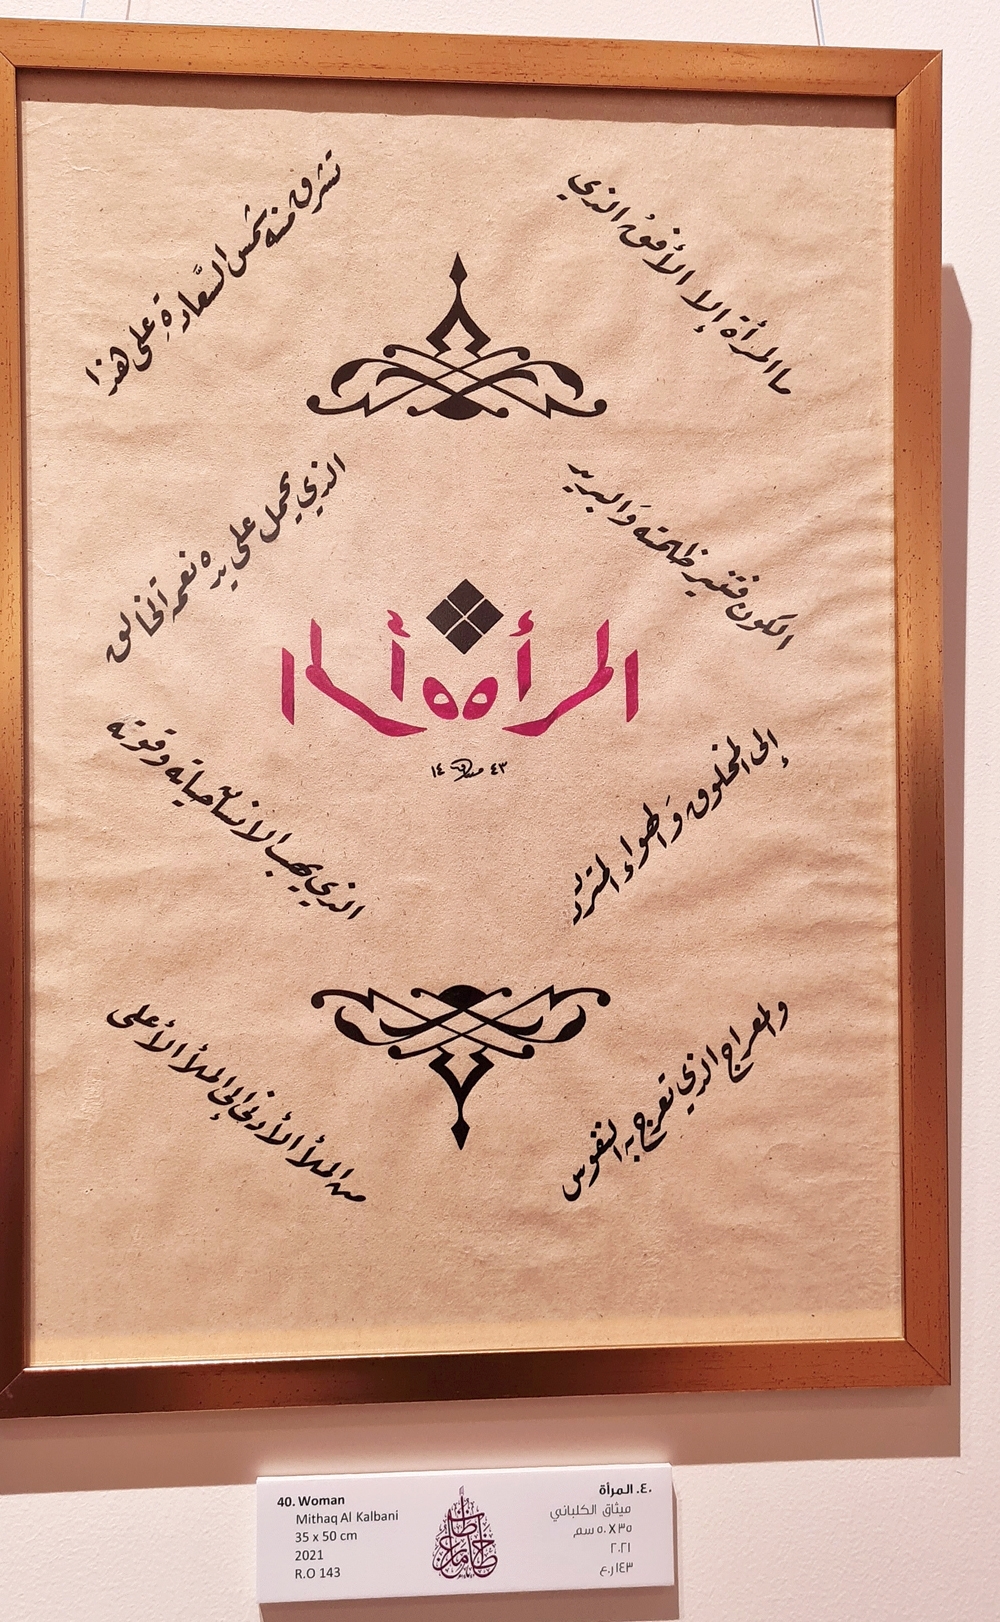 ما المرأة إلا الأفقُ الذي
تشرق منه شمس السَّعادةِ على هذا
الكون فتنير ظلمته وَالبريد
الذي يحمل على يده نعمة الخالق
المرأة
المرأة
١٤٤٣
إلى المخلوق وَالهواء المتردِّد
الذي يهب الإنسان حياته وقوته
والمعراج الذي تعرج به النفوس
من الملأ الأدنى إلى الملأ الأعلى
40. Woman
Mithaq Al Kalbani
35 x 50 cm
2021
R.O 143
٤٠. المرأة
ميثاق الكلباني
٣٥ X ٥٠ سم
٢٠٢١
١٤٣ر.ع